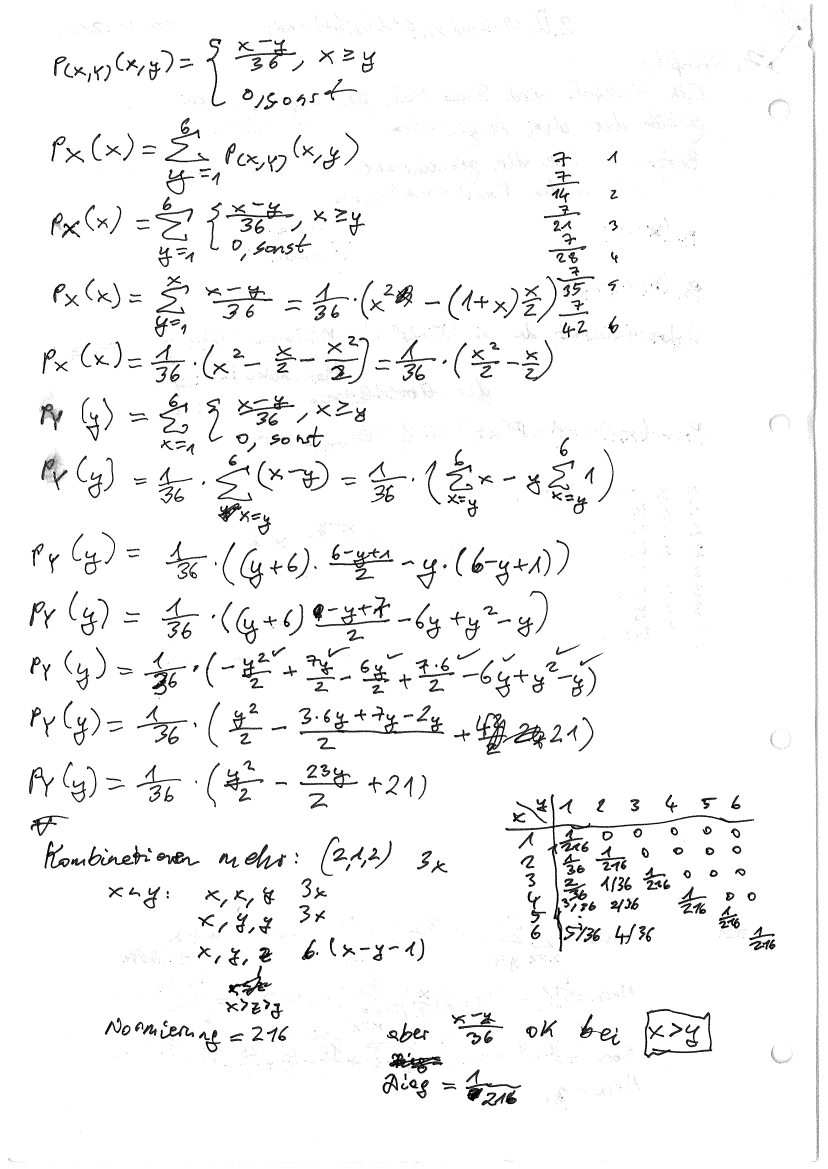 P(X,Y)(x,y) = { (x-y)/36, x ≥ y
0, sonst
PX(x) = ∑_{y=1}^{6} P(X,Y)(x,y)
PX(x) = ∑_{y=1}^{6} { (x-y)/36, x ≥ y
0, sonst
PX(x) = ∑_{y=1}^{x} (x-y)/36 = 1/36 · (x² - (1+x) x/2)
PX(x) = 1/36 · (x² - x/2 - x²/2) = 1/36 · (x²/2 - x/2)
PY(y) = ∑_{x=1}^{6} { (x-y)/36, x ≥ y
0, sonst
PY(y) = 1/36 · ∑_{x=y}^{6} (x-y) = 1/36 · (∑_{x=y}^{6} x - y ∑_{x=y}^{6} 1)
PY(y) = 1/36 · ((y+6) · (6-y+1)/2 - y · (6-y+1))
PY(y) = 1/36 · ((y+6) (-y+7)/2 - 6y + y² - y)
PY(y) = 1/36 · (- y²/2 ✓ + 7y/2 ✓ - 6y/2 ✓ + 7·6/2 - 6y ✓ + y² ✓ - y ✓)
PY(y) = 1/36 · (y²/2 - (3·6y + 7y - 2y)/2 + 21)
PY(y) = 1/36 · (y²/2 - 23y/2 + 21)
7 1
7
14 2
7
21 3
7
28 4
7
35 5
7
42 6
Kombinationen mehr: (2,1,2) 3x
x, x, y 3x
x, y, y 3x
x, y, z 6·(x-y-1)
x>z>y
Normierung = 216
x \ y 1 2 3 4 5 6
1 1/216 0 0 0 0 0
2 1/36 1/216 0 0 0 0
3 2/36 1/36 1/216 0 0 0
4 3/36 2/36 1/216 0 0
5 : 1/216
6 5/36 4/36 1/216
aber (x-y)/36 OK bei x>y
Diag = 1/216